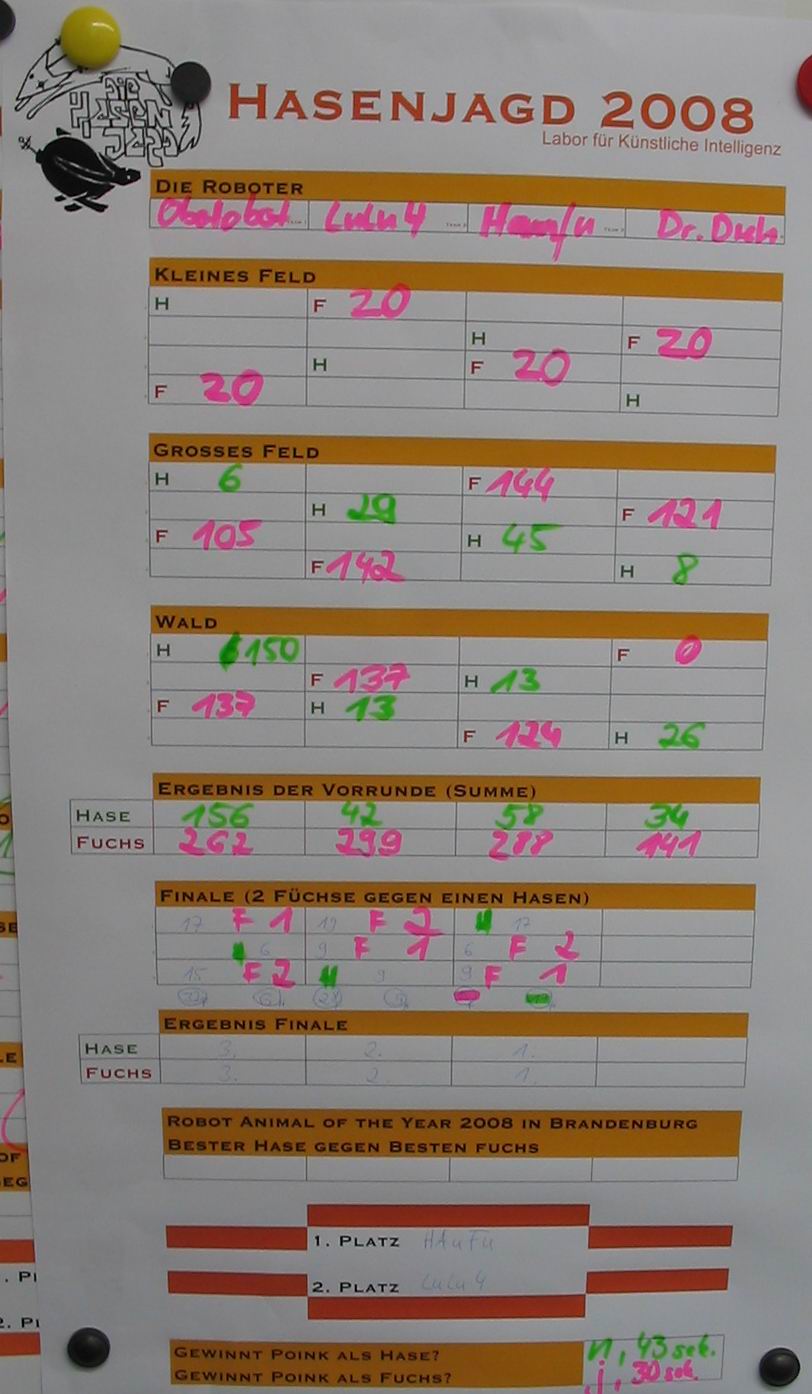 DIE HASEN JAGD
HASENJAGD 2008
Labor für Künstliche Intelligenz
DIE ROBOTER
Obolobot LuLu 4 Ham/u Dr. Duh.
KLEINES FELD
H F 20
H F 20
H F 20
F 20 H
GROSSES FELD
H 6 F 144
H 29 F 121
F 105 H 45
F 142 H 8
WALD
H 150 F 0
F 137 H 13
F 137 H 13
F 124 H 26
ERGEBNIS DER VORRUNDE (SUMME)
HASE 156 42 58 34
FUCHS 262 299 288 141
FINALE (2 FÜCHSE GEGEN EINEN HASEN)
17 F 1 19 F 2 H 17
H 6 9 F 1 6 F 2
15 F 2 H 9 9 F 1
ERGEBNIS FINALE
HASE 3. 2. 1.
FUCHS 3. 2. 1.
ROBOT ANIMAL OF THE YEAR 2008 IN BRANDENBURG
BESTER HASE GEGEN BESTEN FUCHS
1. PLATZ HAuFu
2. PLATZ LuLu 4
GEWINNT POINK ALS HASE? n, 43 sek.
GEWINNT POINK ALS FUCHS? j, 30 sek.